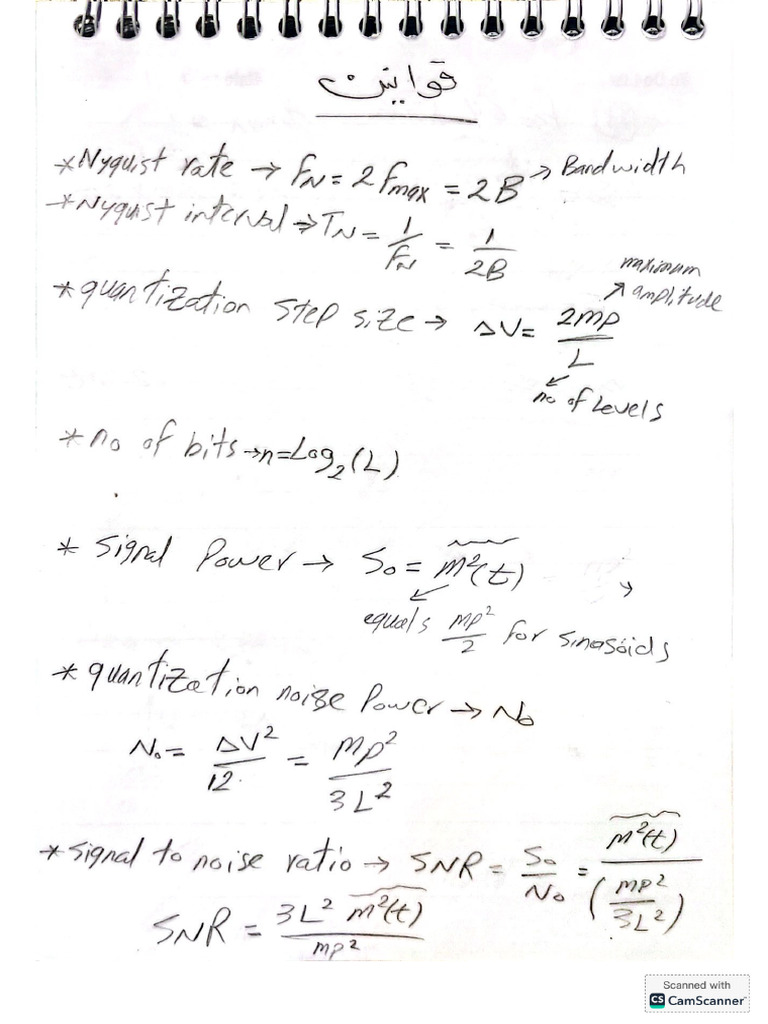 قوانين
* Nyquist rate → FN = 2 Fmax = 2B → Bandwidth
* Nyqust interval → TN = 1/FN = 1/2B
* quantization step size → ΔV = 2mp/L
maximum
↗ amplitude
↙ no of Levels
* no of bits → n = Log2(L)
* Signal Power → So = m²(t)
equals mp²/2 for sinasoids
* quantization noise Power → No
No = ΔV²/12 = mp²/3L²
* signal to noise ratio → SNR = So/No = m²(t)/(mp²/3L²)
SNR = 3L² m²(t)/mp²
Scanned with
CS CamScanner